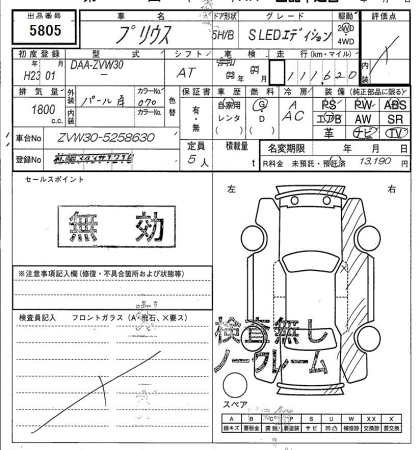 出品番号 車名 ドア形状 グレード 駆動 評価点
5805 プリウス 5H/B S LEDエディション 2WD 4WD
初度登録 型式 シフト 車検 走行(km・マイル) 内 外
H23 01 DAA-ZVW30- AT 111,620
排気量 外装 カラーNo. 色替 保証書 車歴 燃料 冷房 装備(純正部品に限る)
1800 c.c. パール白 070 有・無 自家用 レンタ G D AC PS PW ABS
内装 カラーNo. エアB AW SR
革 ナビ TV
車台No ZVW30-5258630 定員 積載量 名変期限 年 月 日
登録No 5人 t R料金 未預託・預託済 13,190円
セールスポイント 左 右
無効
※注意事項記入欄(修復・不具合箇所および状態等)
検査員記入 フロントガラス(A・飛石、X要ス)
検査無し
ノークレーム
スペア
A B C P S U W X XX ×
線キズ 要板金 腐蝕 要塗装 サビ 凹凸 補修跡 交換跡 要交換